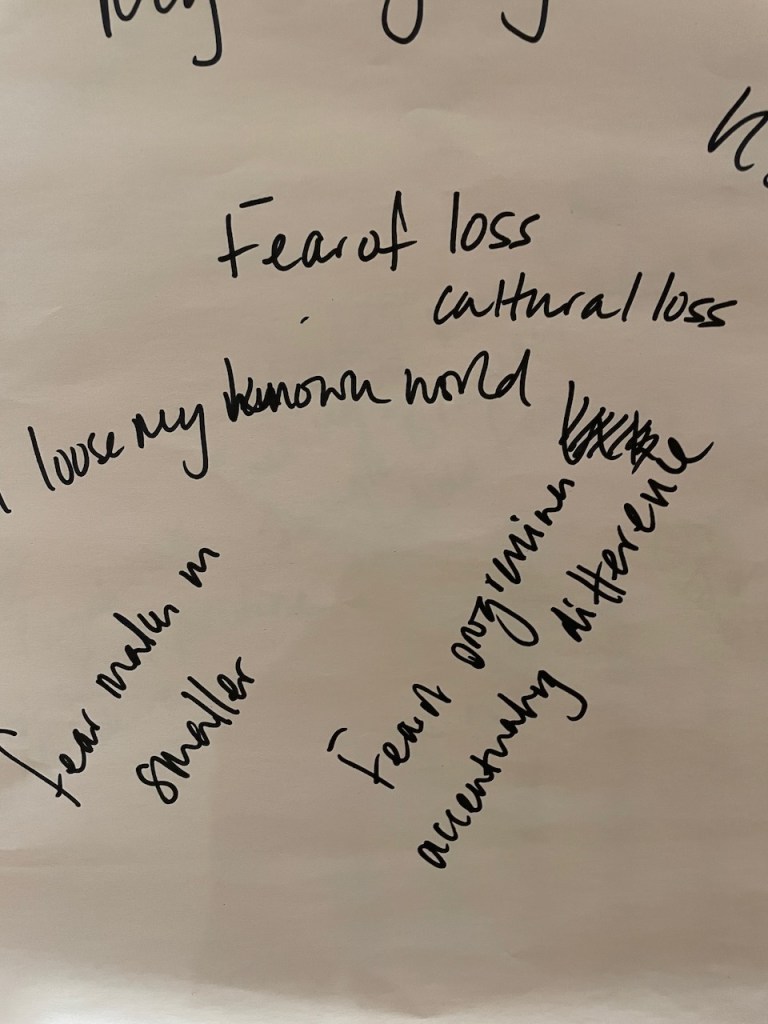 Fear of loss
cultural loss
loose my known world
Fear makes
smaller
Fear
accentuating difference